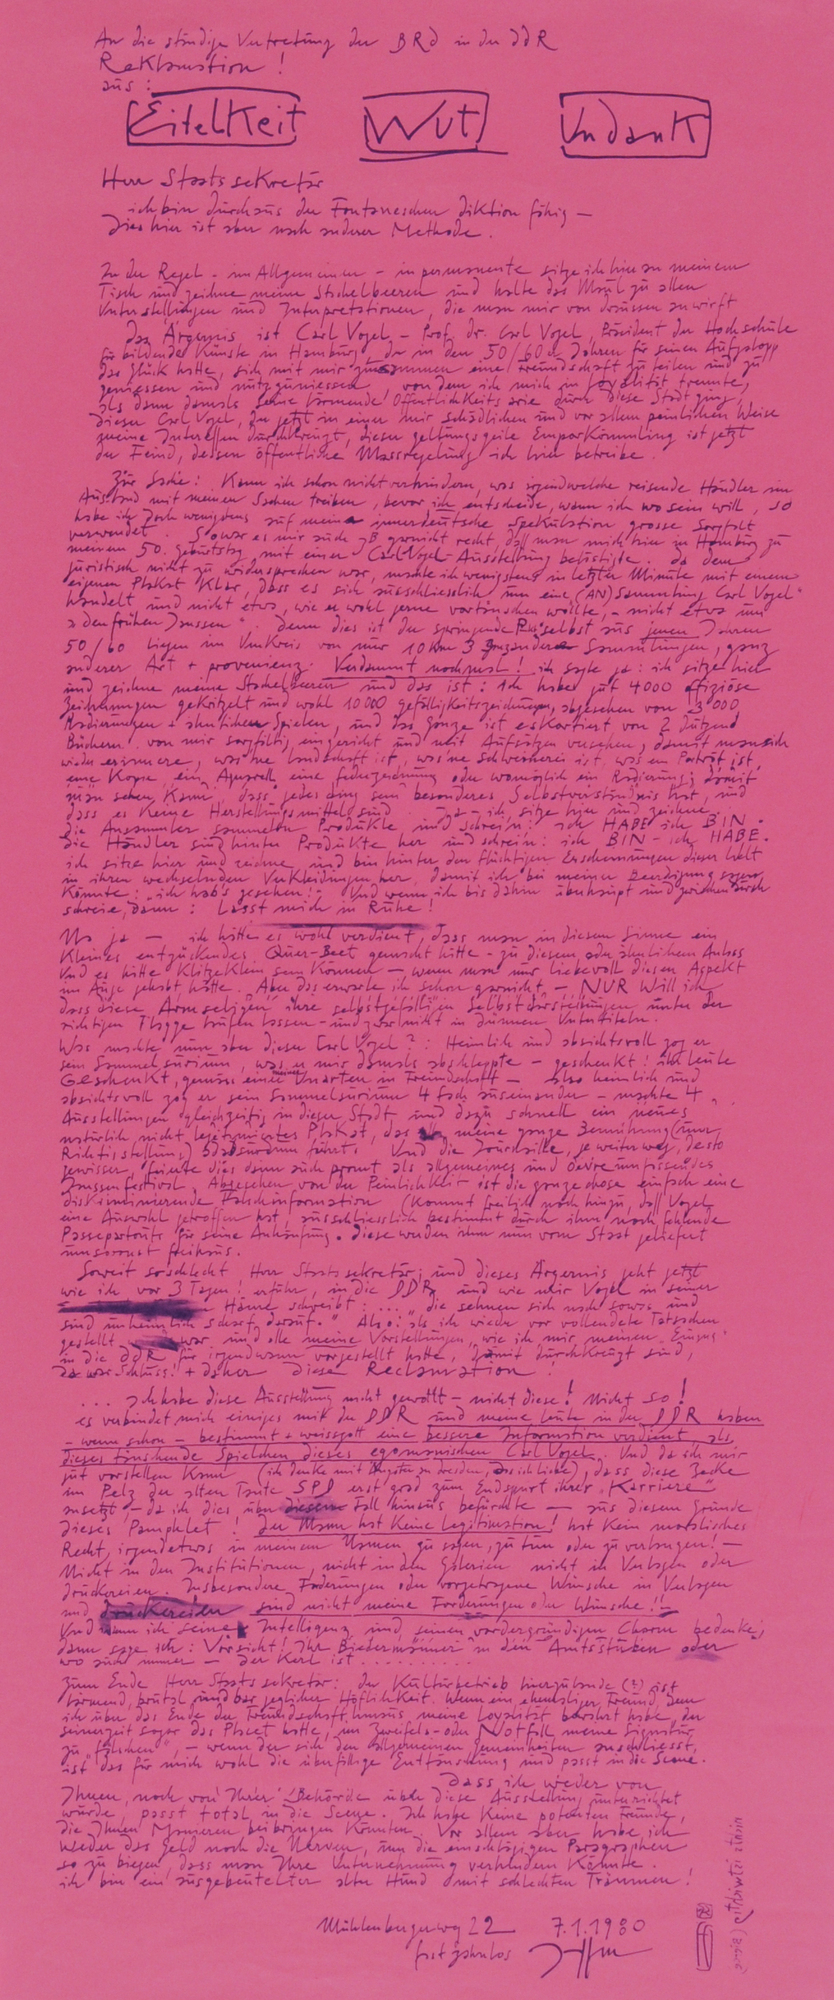 An die ständige Vertretung der BRD in der DDR
Reklamation !
aus :
Eitelkeit Wut Undank
Herr Staatssekretär
ich bin durchaus der Fontaneschen Diktion fähig –
Dies hier ist aber nach anderer Methode .
In der Regel - im Allgemeinen - in permanente sitze ich hier an meinem
Tisch und zeichne meine Stachelbeeren und halte das Maul zu allen
Unterstellungen und Interpretationen, die man mir von draussen zuwirft
Das Ärgernis ist Carl Vogel – Prof. Dr. Carl Vogel, Präsident der Hochschule
für bildende Künste in Hamburg, der in den 50/60er Jahren für seinen Aufgalopp
das Glück hatte, sich mit mir zusammen eine Freundschaft zu teilen und zu
geniessen und nutzzuniessen von dem ich mich in Loyalität trennte,
als dann damals seine lärmende Öffentlichkeits arie durch diese Stadt ging,
dieser Carl Vogel, der jetzt in einer mir schädlichen und vor allem peinlichen Weise
meine Interessen durchkreuzt, dieser geltungsgeile Emporkömmling ist jetzt
der Feind, dessen öffentliche Massregelung ich hier betreibe .
Zur Sache : Kann ich schon nicht verhindern, was irgendwelche reisende Händler im
Ausland mit meinen Sachen treiben, bevor ich entscheide, wann ich wo sein will, so
habe ich doch wenigstens auf meine innerdeutsche Spekulation grosse Sorgfalt
verwendet . So war es mir auch zB garnicht recht, daß man mich hier in Hamburg zu
meinem 50. Geburtstag mit einer Carl Vogel-Ausstellung belästigte . da dem
juristisch nicht zu widersprechen war, machte ich wenigstens in letzter Minute mit einem
eigenen Plakat klar, dass es sich ausschliesslich um eine (AN)Sammlung Carl Vogel"
handelt und nicht etwa, wie er wohl gerne vortäuschen wollte, - nicht etwa um
"den frühen Janssen" . Denn dies ist der springende selbst aus jenen Jahren
50/60 liegen im Umkreis von nur 10 km 3 andere Sammlungen, ganz
anderer Art + provenienz. Verdammt nochmal ! ich sagte ja : ich sitze hier
und zeichne meine Stachelbeeren und das ist : Ich habe gut 4000 offiziöse
Zeichnungen gekritzelt und wohl 10000 gefälligkeitszeichnungen, abgesehen von 3000
Radierungen + ähnlichen Spielen, und das Ganze ist eskortiert von 2 Dutzend
Büchern, von mir sorgfältig eingericht und mit Aufsätzen versehen, damit man sich
wieder erinnere, was ne Landschaft ist, was ne Schweinerei ist, was ein Porträt ist,
eine Kopie, ein Aquarell eine federzeichnung oder womöglich ein Radierung ; damit
man sehen kann dass jedes Ding sein besonderes Selbstverständnis hat, und
dass es keine Herstellungsmittel sind . Ja – ich sitze hier und zeichne,
die Ansammler sammeln Produkte und schrein : ich HABE ich BIN .
die Händler sind hinter Produkte her und schrein : ich BIN – ich HABE .
ich sitze hier und zeichne und bin hinter den flüchtigen Erscheinungen dieser Welt
in ihren wechselnden Verkleidungen her, damit ich bei meiner Beerdigung sagen
könnte : "ich hab's gesehen!" Und wenn ich bis dahin überhaupt mal zwischendurch
schreie, dann : Lasst mich in Ruhe !
Na ja – ich hätte es wohl verdient, dass man in diesem Sinne ein
kleines entzückendes Quer-Beet gemacht hätte - zu diesem oder ähnlichem Anlass
Und es hätte klitzeklein sein können – wenn man nur liebevoll diesen Aspekt
im Auge gehabt hätte . Aber das erwarte ich schon garnicht, – NUR will ich
dass diese Armseligen ihre selbstgefälligen Selbstdarstellungen unter der
richtigen Flagge laufen lassen - und zwar nicht in dünnen Untertiteln .
Was machte nun aber dieser Carl Vogel ? : Heimlich und absichtsvoll zog er
sein Sammelsurium, was er mir damals abschleppte – geschenkt !
Geschenkt, gemäss einer meiner Unarten in Freundschaft – Also heimlich und
absichtsvoll zog er sein Sammelsurium 4 fach auseinander – machte 4
Ausstellungen gleichzeitig in dieser Stadt und dazu schnell ein neues
natürlich nicht legitimiertes Plakat, das meine ganze Bemühung (um
Richtigstellung) ad absurdum führt. Und die Journaille, je weiter weg, desto
gewisser, feierte dies dann auch promt als allgemeines und œvre umfassendes
Janssenfestival. Abgesehen von der Peinlichkeit ist die ganze chose einfach eine
diskriminierende Falschinformation (kommt freilich noch hinzu, daß Vogel
eine Auswahl getroffen hat, ausschliesslich bestimmt durch ihm noch fehlende
Passepartouts für seine Anhäufung . diese wurden ihm nun vom Staat geliefert
umsonst freihaus.
Soweit so schlecht Herr Staatssekretär ; und dieses Ärgernis geht jetzt
wie ich vor 3 Tagen ! erfuhr, in die DDR und wie mir Vogel in seiner
Häme schreibt : ... „die sehnen sich nach sowas und
sind unheimlich scharf darauf." Also : als ich wieder vor vollendete Tatsachen
gestellt war und alle meine Vorstellungen, wie ich mir meinen "Einzug"
in die DDR für irgendwann vorgestellt hatte, damit durchkreuzt sind,
da war Schluss ! + daher diese Reclamation !
... Ich habe diese Ausstellung nicht gewollt – nicht diese ! Nicht so !
es verbindet mich einiges mit der DDR und meine Leute in der DDR haben
– wenn schon – bestimmt + weissgott eine bessere Information verdient, als
dieses täuschende Spielchen dieses egomanischen Carl Vogel . Und da ich mir
gut vorstellen kann (ich denke mit Ängsten an dresden, das ich liebe), dass diese Zecke
im Pelz der alten Tante SPD erst grad zum Endspurt ihrer "Karriere"
ansetzt – da ich dies über diesen Fall hinaus befürchte – aus diesem Grunde
dieses Pamphlet ! der Mann hat keine Legitimation ! hat kein moralisches
Recht, irgendetwas in meinem Namen zu sagen, zu tun oder zu verlangen ! –
Nicht in den Institutionen, nicht in den Galerien nicht in Verlagen oder
druckereien . Insbesondere Foderungen oder vorgetragene Wünsche in Verlagen
und druckereien sind nicht meine Forderungen oder Wünsche !!
Und wenn ich seine Intelligenz und seinen vordergründigen Charm bedenke,
dann sage ich : Vorsicht ! Ihr Biedermänner in den Amtsstuben oder
wo auch immer – der Kerl ist ..........
Zum Ende Herr Staatssekretär : der Kulturbetrieb hierzulande (?) ist
lärmend, brutal und bar jeglicher Höflichkeit. Wenn ein ehemaliger Freund, dem
ich über das Ende der Freundschaft hinaus meine Loyalität bewahrt habe, der
seinerzeit sogar das Placet hatte, im Zweifels- oder Notfall meine Signatur
zu "fälschen", – wenn der sich den allgemeinen Gemeinheiten anschliesst,
ist das für mich wohl die überfällige Enttäuschung und passt in die Scene .
Dass ich weder von
Ihnen, noch von Ihrer Behörde über diese Ausstellung unterrichtet
wurde, passt total in die Scene . Ich habe keine potenten Freunde,
die Ihnen Manieren beibringen könnten . Vor allem aber habe ich
weder das Geld noch die Nerven, um die einschlägigen Paragraphen
so zu biegen, dass man Ihre Unternehmung verhindern könnte .
ich bin ein ausgebeutelter alter Hund mit schlechten Träumen !
Mühlenbergerweg 22 7.1.1980
fast zahnlos